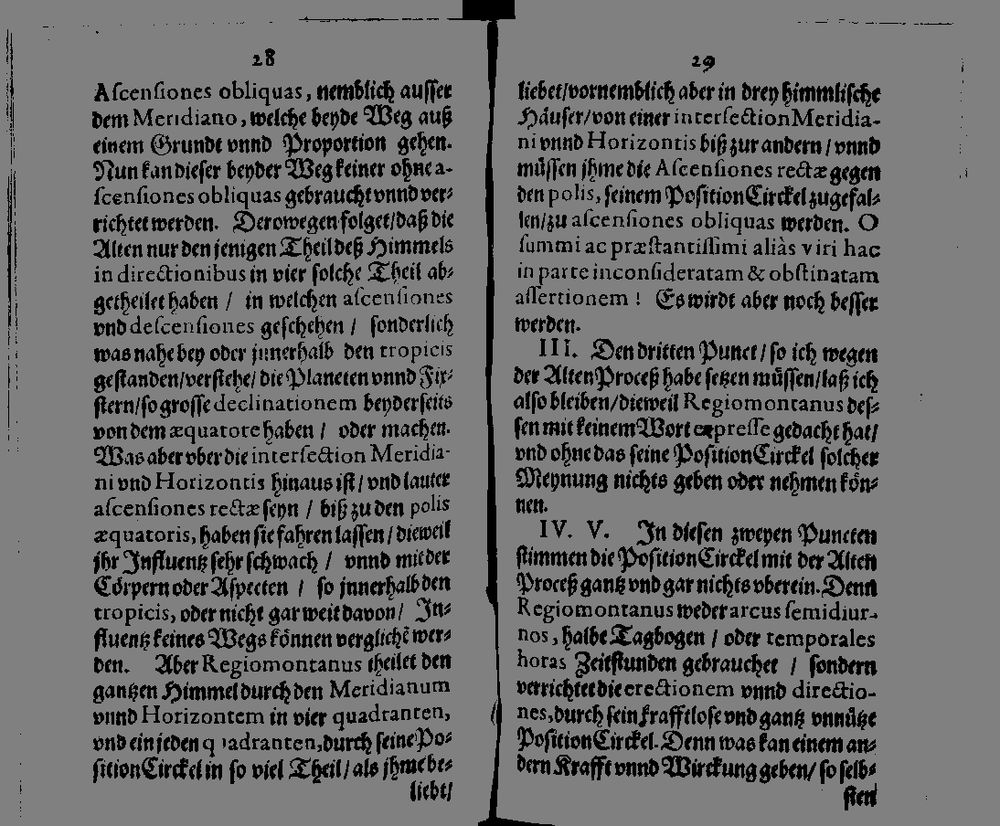 28
Ascensiones obliquas, nemblich ausser
dem Meridiano, welche beyde Weg auß
einem Grundt vnnd Proportion gehen.
Nun kan dieser beyder Weg keiner ohne a-
scensiones obliquas gebraucht vnnd ver-
richtet werden. Derowegen folget/daß die
Alten nur den jenigen Theil deß Himmels
in directionibus in vier solche Theil ab-
getheilet haben / in welchen ascensiones
vnd descensiones geschehen / sonderlich
was nahe bey oder jnnerhalb den tropicis
gestanden/verstehe/ die Planeten vnnd Fix-
stern/so grosse declinationem beyderseits
von dem æquatore haben / oder machen.
Was aber vber die intersection Meridia-
ni vnd Horizontis hinaus ist/ vnd lauter
ascensiones rectæ seyn / biß zu den polis
æquatoris, haben sie fahren lassen/ dieweil
jhr Influentz sehr schwach / vnnd mit der
Cörpern oder Aspecten / so jnnerhalb den
tropicis, oder nicht gar weit davon/ In-
fluentz keines Wegs können verglichẽ wer-
den. Aber Regiomontanus theilet den
gantzen Himmel durch den Meridianum
vnnd Horizontem in vier quadranten,
vnd ein jeden quadranten, durch seine Po-
sition Circkel in so viel Theil/ als jhme be-
liebt/
29
liebet/vornemblich aber in drey himmlische
Häuser/von einer intersection Meridia-
ni vnnd Horizontis biß zur andern/ vnnd
müssen jhme die Ascensiones rectæ gegen
den polis, seinem Position Circkel zugefal-
len/zu ascensiones obliquas werden. O
summi ac præstantissimi aliàs viri hac
in parte inconsideratam & obstinatam
assertionem ! Es wirdt aber noch besser
werden.
III. Den dritten Punct/ so ich wegen
der Alten Proceß habe setzen müssen/laß ich
also bleiben/dieweil Regiomontanus des-
sen mit keinem Wort expresse gedacht hat/
vnd ohne das seine Position Circkel solcher
Meynung nichts geben oder nehmen kön-
nen.
IV. V. In diesen zweyen Puncten
stimmen die Position Circkel mit der Alten
Proceß gantz vnd gar nichts vberein. Denn
Regiomontanus weder arcus semidiur-
nos, halbe Tagbogen / oder temporales
horas Zeitstunden gebrauchet / sondern
verrichtet die erectionem vnnd directio-
nes, durch sein krafftlose vnd gantz vnnütze
Position Circkel. Denn was kan einem an-
dern Krafft vnnd Wirckung geben/ so selb-
sten